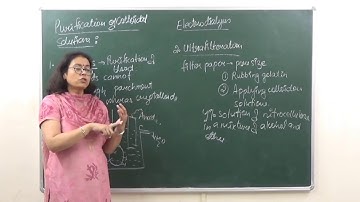 Purification of colloidal
solution :
1-
Purification is
Used
cannot
parchment
whereas crystalloids
Anode
H₂O
Electrodialysis
2. Ultrafiltration
filter paper → pore size
① Rubbing gelatin
② Applying collodion
solution
4% solution of nitrocellulose
in a mixture of alcohol and
ether